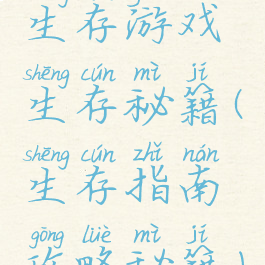 生存游戏
shēng cún mì jí
生存秘籍(
shēng cún zhǐ nán
生存指南
gōng lüè mì jí
攻略秘籍)